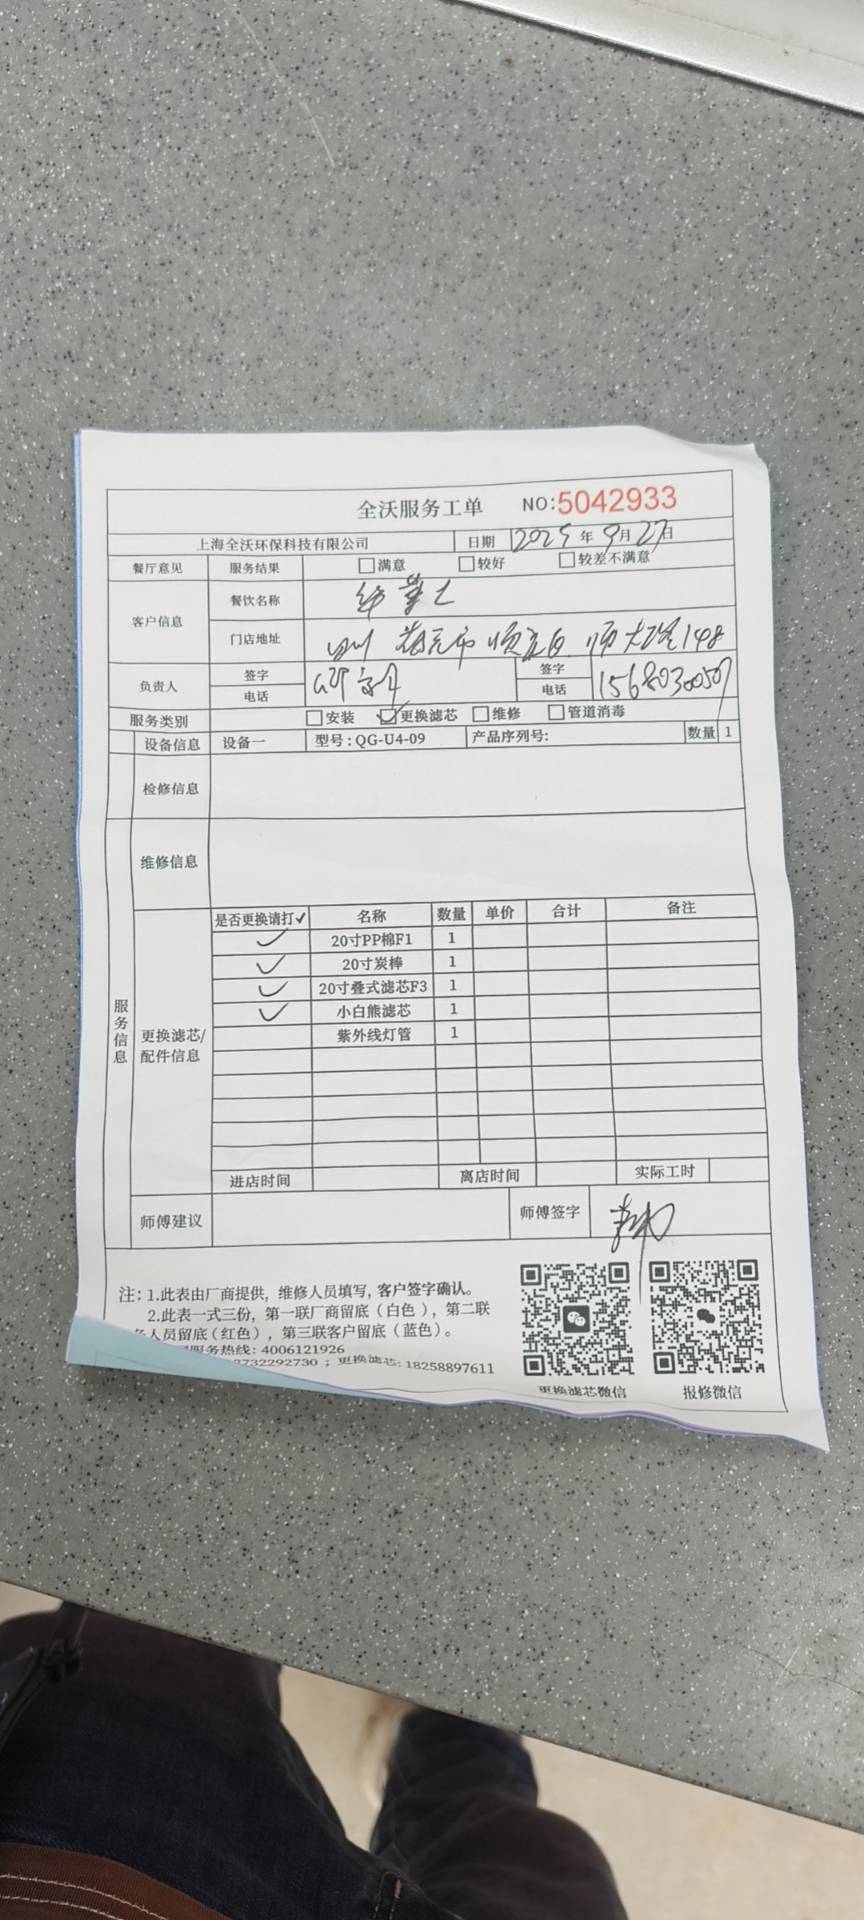 全沃服务工单 NO:5042933
上海全沃环保科技有限公司 日期 2025年9月27日
餐厅意见 服务结果 满意 较好 较差不满意
客户信息 餐饮名称 华莱士
门店地址 四川 148
负责人 签字 签字
电话 电话 15680300507
服务类别 安装 ✓更换滤芯 维修 管道消毒
设备信息 设备一 型号:QG-U4-09 产品序列号: 数量 1
检修信息
维修信息
服务信息
更换滤芯/配件信息
是否更换请打✓ 名称 数量 单价 合计 备注
✓ 20寸PP棉F1 1
✓ 20寸炭棒 1
✓ 20寸叠式滤芯F3 1
✓ 小白熊滤芯 1
紫外线灯管 1
进店时间 离店时间 实际工时
师傅建议 师傅签字
注:1.此表由厂商提供,维修人员填写,客户签字确认。
2.此表一式三份,第一联厂商留底(白色),第二联
人员留底(红色),第三联客户留底(蓝色)。
服务热线:4006121926
3732292730;更换滤芯:18258897611
更换滤芯微信 报修微信